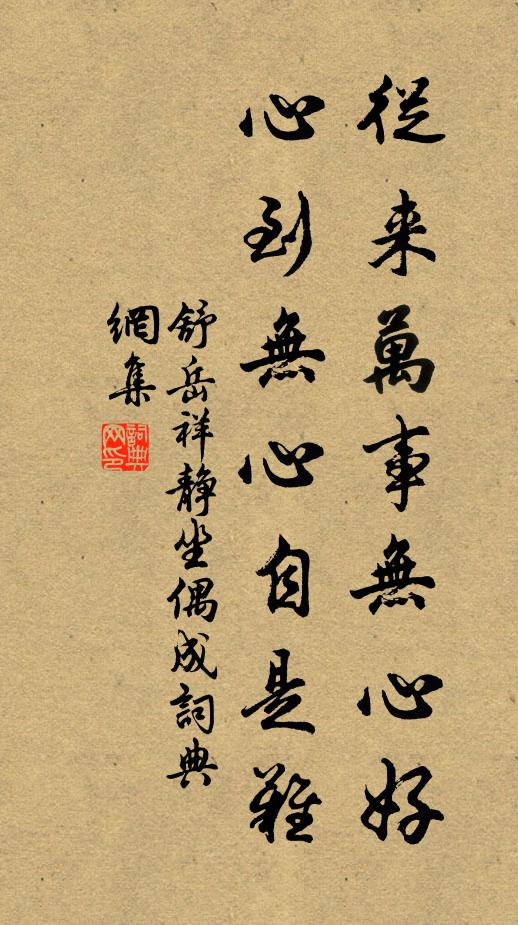 從来萬事無心好
心到無心自是難
舒岳祥靜坐偶成詞典
網集
詞典
网印